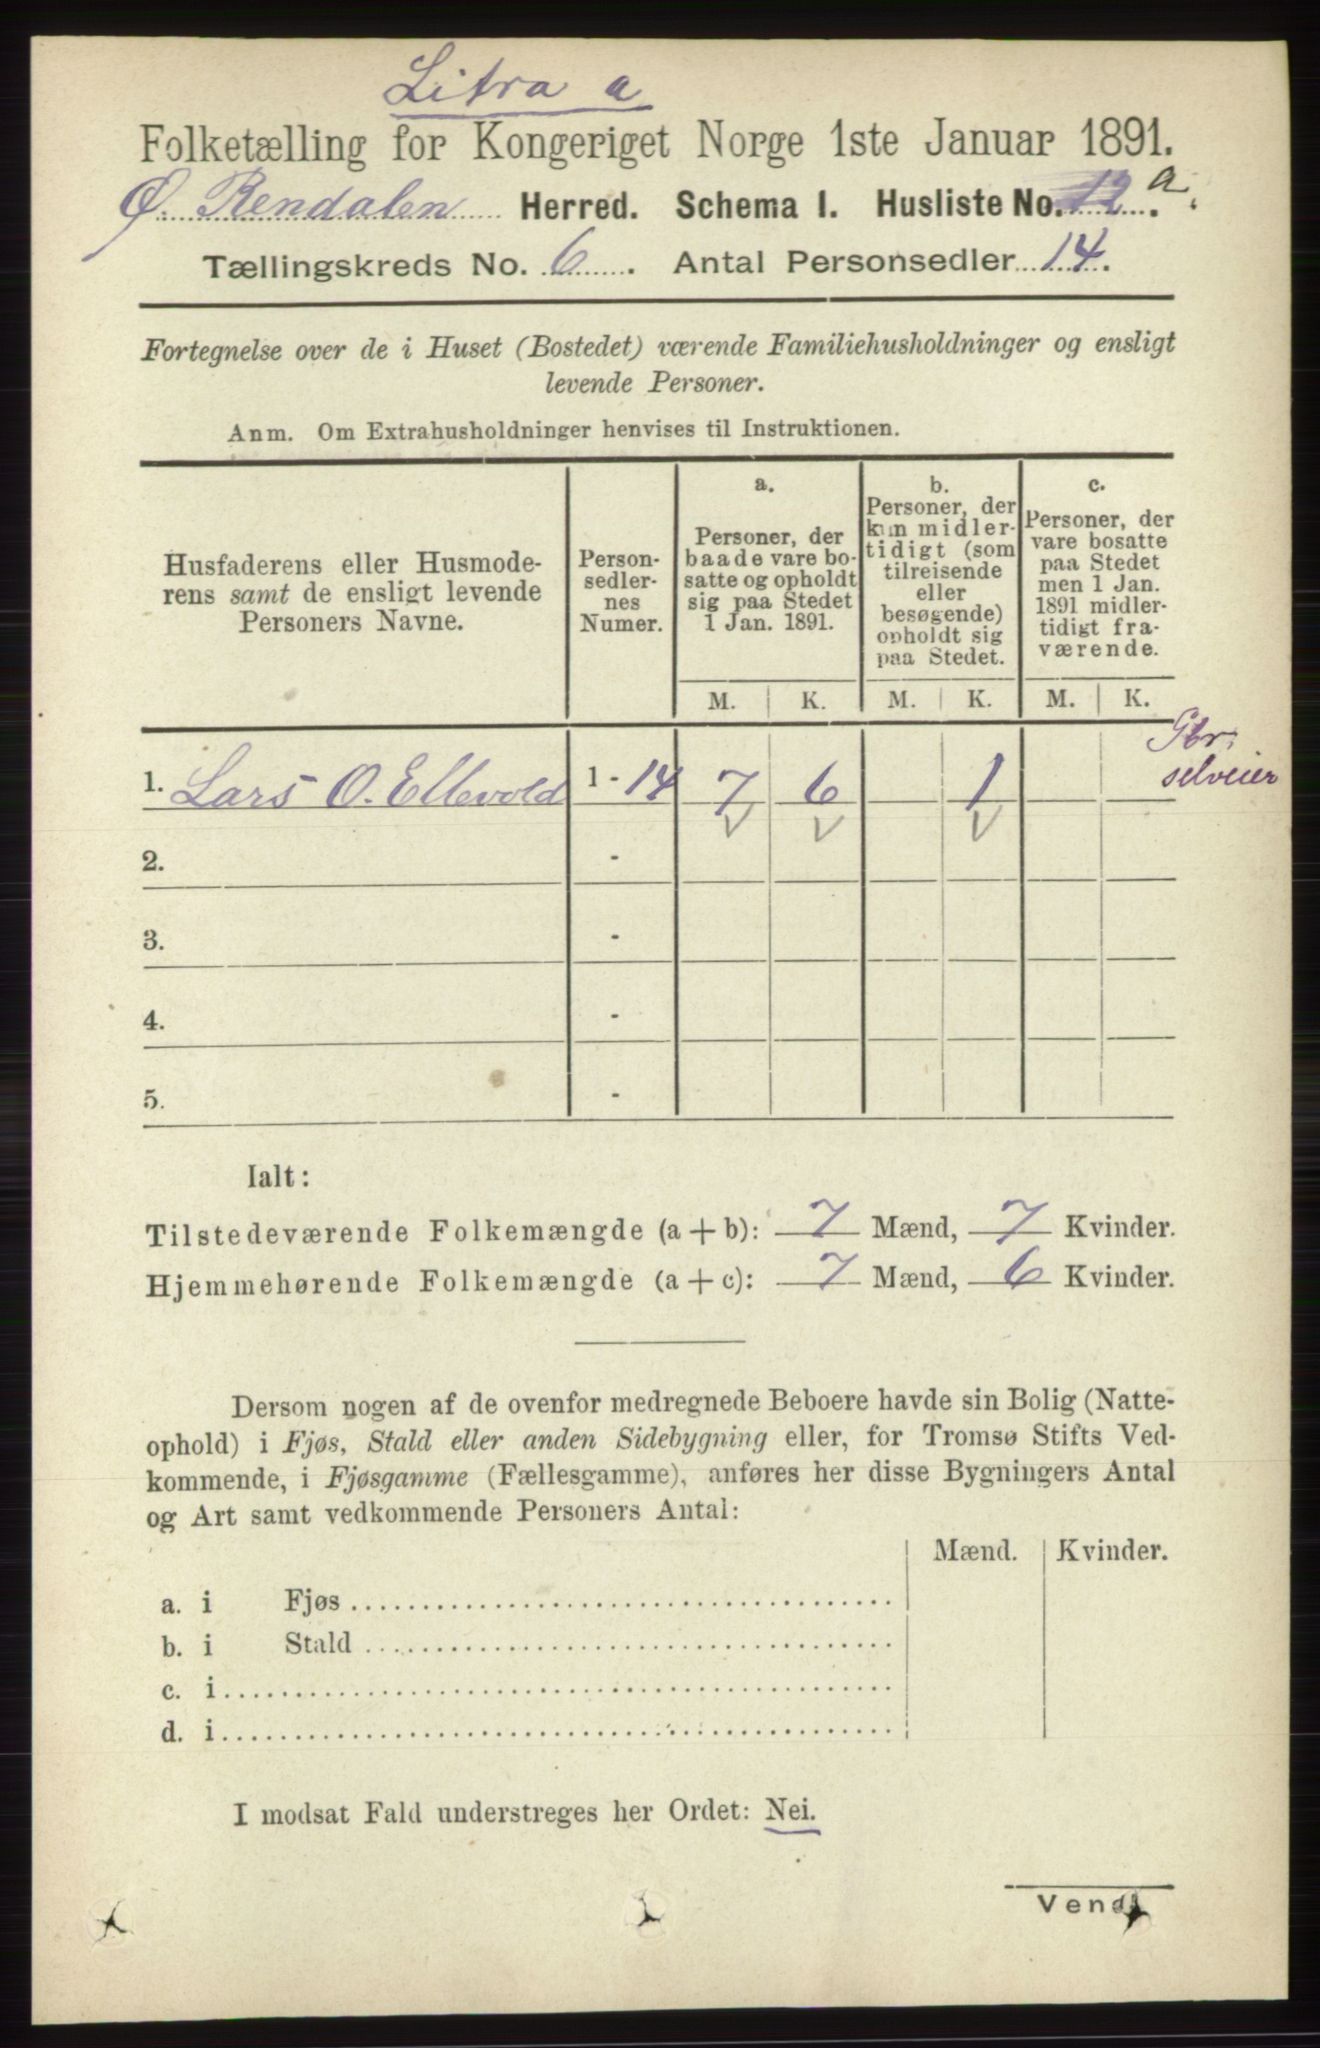 Litra a
Folketælling for Kongeriget Norge 1ste Januar 1891.
Ø. Rendalen Herred. Schema I. Husliste No. 12 a.
Tællingskreds No. 6. Antal Personsedler 14.
Fortegnelse over de i Huset (Bostedet) værende Familiehusholdninger og ensligt
levende Personer.
Anm. Om Extrahusholdninger henvises til Instruktionen.
Husfaderens eller Husmode-
rens samt de ensligt levende
Personers Navne.
Person-
sedler-
nes
Numer.
a.
Personer, der
baade vare bo-
satte og opholdt
sig paa Stedet
1 Jan. 1891.
b.
Personer, der
kun midler-
tidigt (som
tilreisende
eller
besøgende)
opholdt sig
paa Stedet.
c.
Personer, der
vare bosatte
paa Stedet
men 1 Jan.
1891 midler-
tidigt fra-
værende.
M. K. M. K. M. K.
Gbr.
selveier
1. Lars O. Ellevold 1 - 14 7 6 1
2. -
3. -
4. -
5. -
Ialt:
Tilstedeværende Folkemængde (a + b): 7 Mænd, 7 Kvinder.
Hjemmehørende Folkemængde (a + c): 7 Mænd, 6 Kvinder.
Dersom nogen af de ovenfor medregnede Beboere havde sin Bolig (Natte-
ophold) i Fjøs, Stald eller anden Sidebygning eller, for Tromsø Stifts Ved-
kommende, i Fjøsgamme (Fællesgamme), anføres her disse Bygningers Antal
og Art samt vedkommende Personers Antal:
Mænd. Kvinder.
a. i Fjøs
b. i Stald
c. i
d. i
I modsat Fald understreges her Ordet: Nei.
Vend!